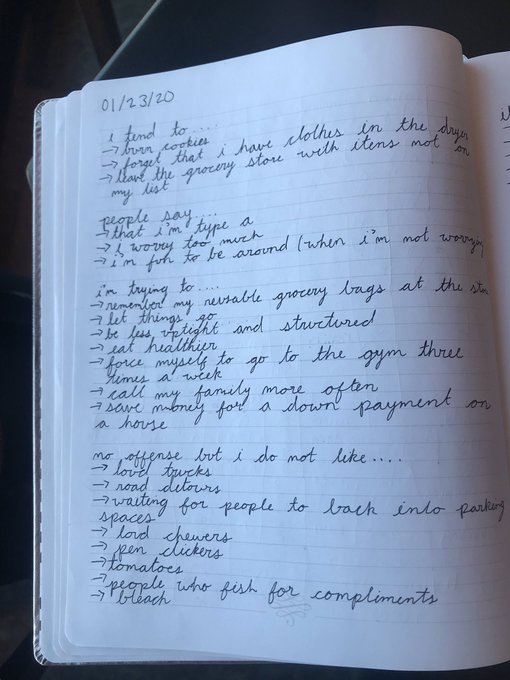 01/23/20
i tend to....
→ burn cookies
→ forget that i have clothes in the dryer
→ leave the grocery store with items not on
my list
people say...
→ that i'm type a
→ i worry too much
→ i'm fun to be around (when i'm not worrying
i'm trying to....
→ remember my reusable grocery bags at the
→ let things go
→ be less uptight and structured
→ eat healthier
→ force myself to go to the gym three
times a week
→ call my family more often
→ save money for a down payment on
a house
no offense but i do not like....
→ loud trucks
→ road detours
→ waiting for people to back into parking
spaces
→ loud chewers
→ pen clickers
→ tomatoes
→ people who fish for compliments
→ bleach